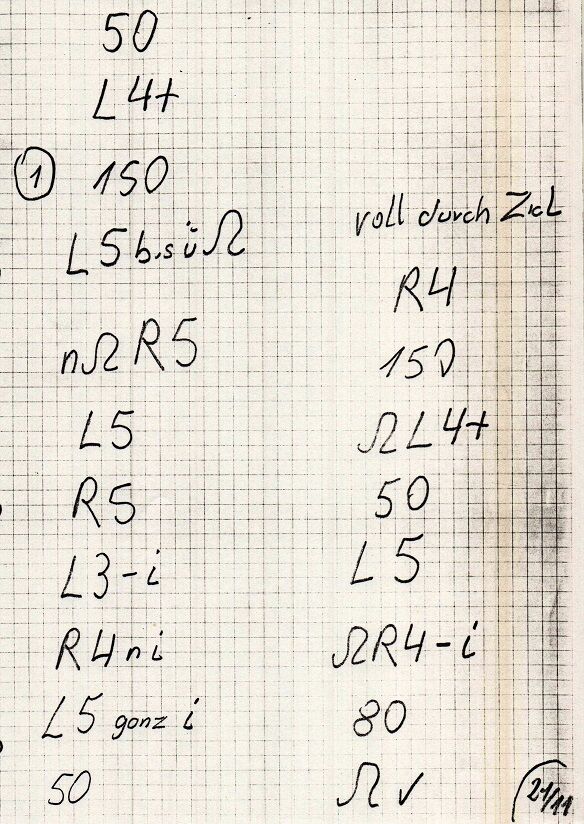 50
L4+
① 150
L5 bis ü Ω
nΩ R5
L5
R5
L3-i
R4 ni
L5 ganz i
50
voll durch Ziel
R4
150
Ω L4+
50
L5
ΩR4-i
80
Ω v
21/11